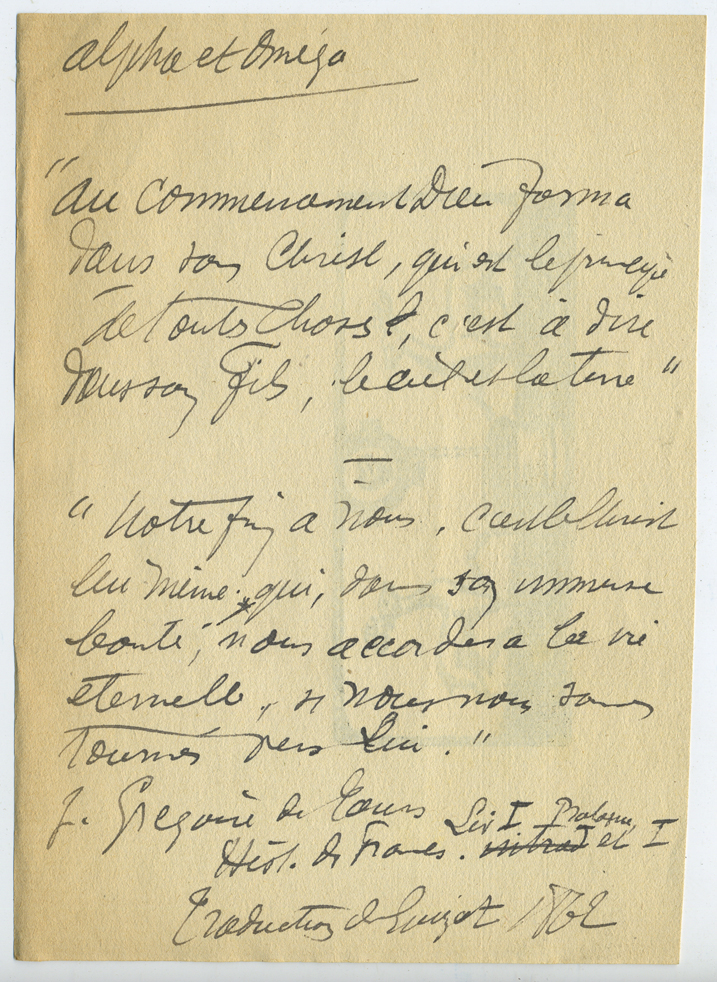 alpha et oméga
"au commencement Dieu forma
dans son Christ, qui est le principe
de toutes choses, c'est à dire
dans son Fils, le ciel et la terre"
"Notre fin à nous, c'est le Christ
lui même qui, dans son immense
bonté, nous accordera la vie
eternelle, si nous nous sommes
tournés vers Lui."
Gregoire de Tours Liv I Prologue
Hist. des Francs. I et I
Traduction de Guizot 1862